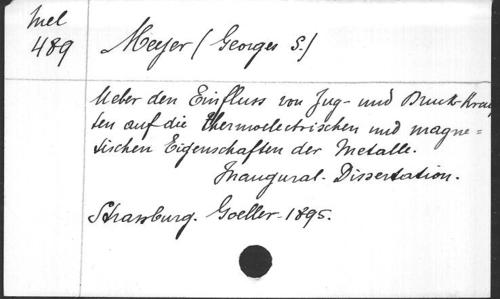 Mel
489
Meyer (Georges S.)
Ueber den Einfluss von Zug- und Druck-Kräf
ten auf die thermoelectrischen und magne=
tischen Eigenschaften der Metalle.
Inaugural-Dissertation.
Strassburg. Goeller-1895.